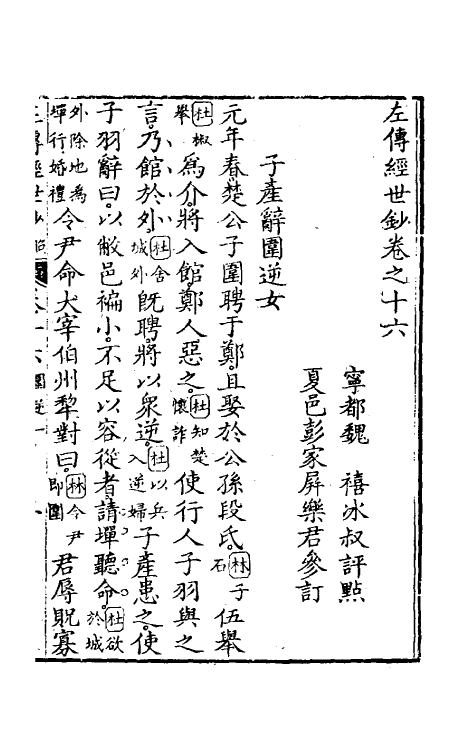 左傳經世鈔卷之十六
寧都魏　禧冰叔評點
夏邑彭家屏樂君參訂
子產辭圍逆女
元年春楚公子圍聘于鄭且娶於公孫段氏林子石伍舉
杜椒舉為介將入館鄭人惡之杜知楚懷詐使行人子羽與之
言乃館於外杜舍城外既聘將以眾逆杜以兵入逆婦子產患之使
子羽辭曰以敝邑褊小不足以容從者請墠聽命杜欲於城
外除地為墠行婚禮令尹命大宰伯州犁對曰林令尹即圍君辱貺寡